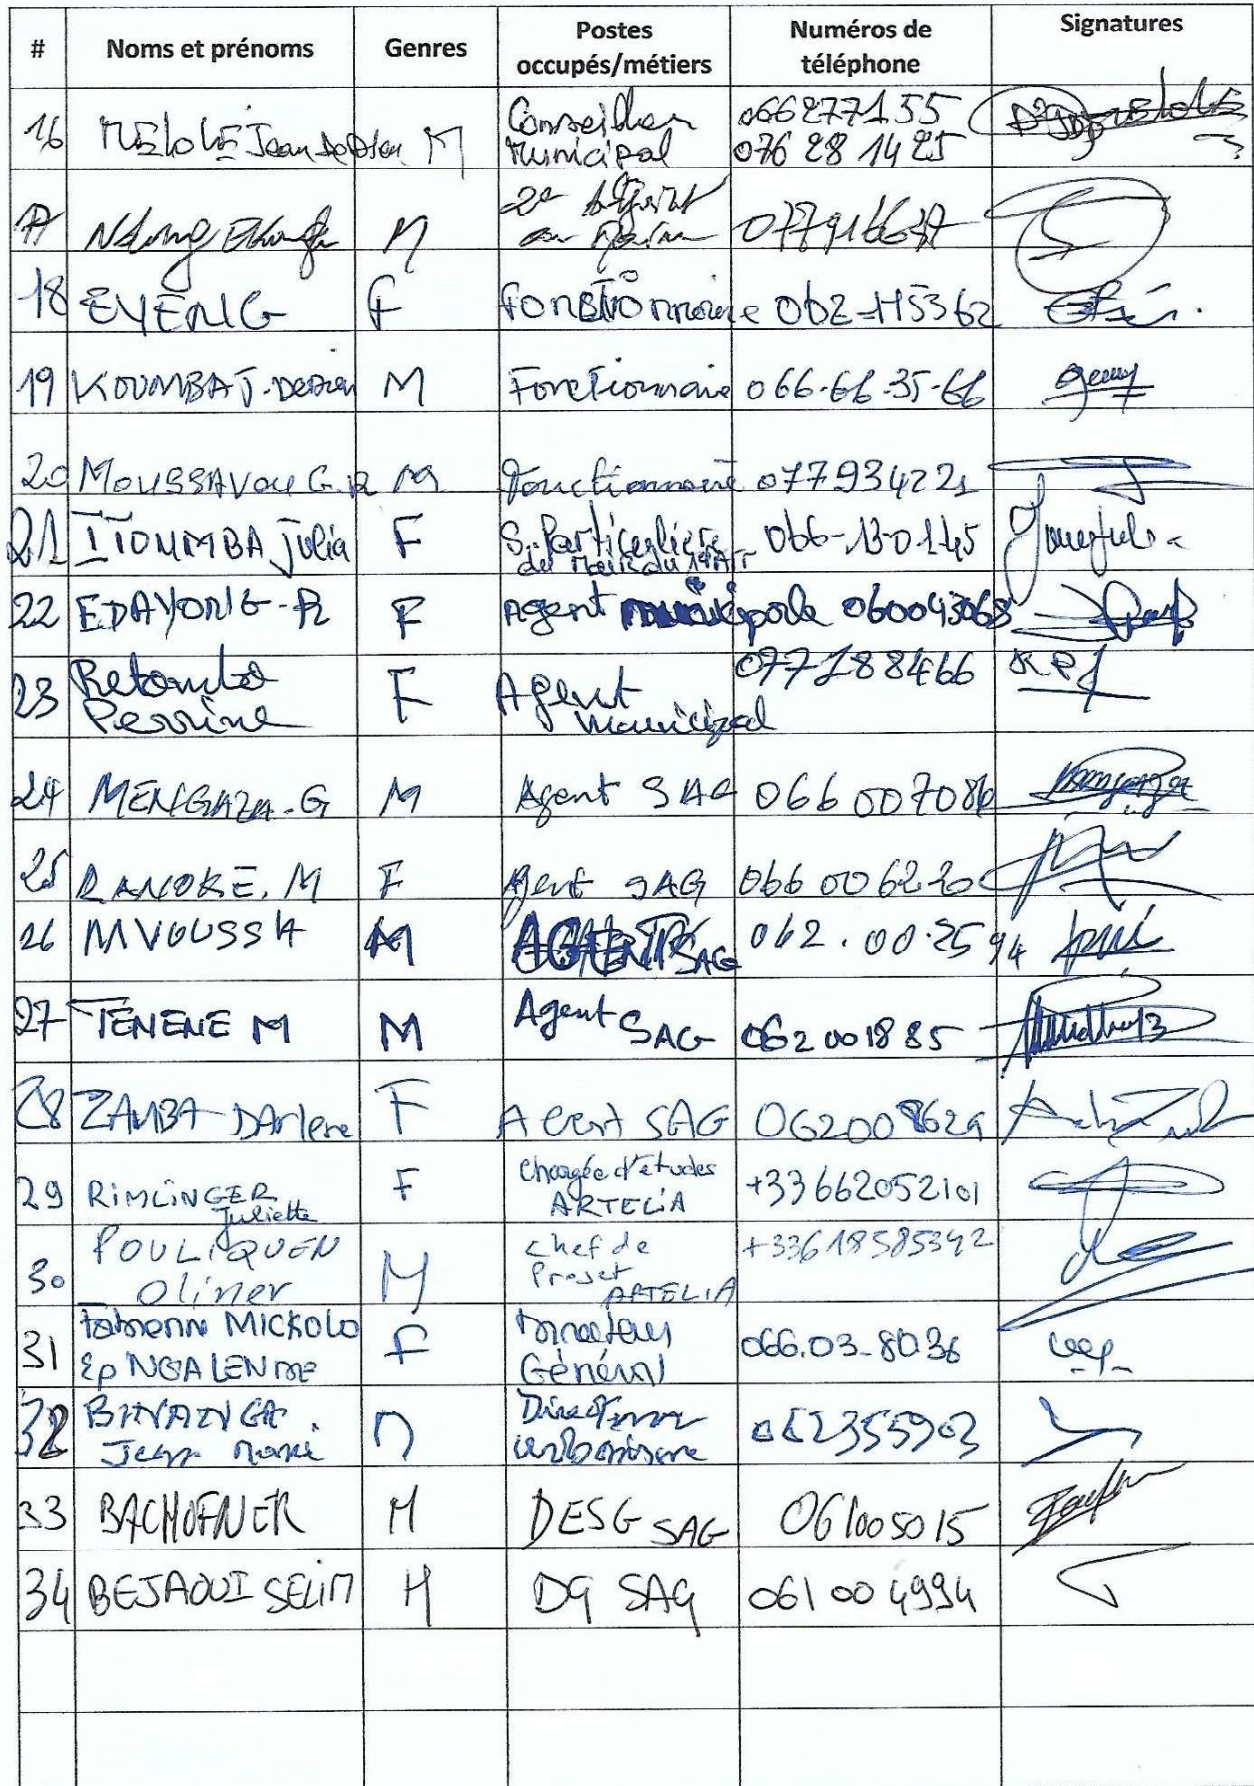 # Noms et prénoms Genres Postes occupés/métiers Numéros de téléphone Signatures
16 Jean de Dieu M Conseiller Municipal 066277155 076 28 14 25
17 Ndong M 2e
18 EYENG F 062-115362
19 KOUMBA J. M Fonctionnaire 066-66-35-66
20 MOUSSAVOU G.R M Fonctionnaire 077934221
21 ITOUMBA Julia F S. Particulière du Maire du 066-13-01-45
22 EDAYONG-R F Agent 060043068
23 Retombo Perrine F Agent municipal 077188466
24 MENGAZA-G M Agent SAG 066 007086
25 RANOKE. M F Agent SAG 066 006220
26 MVOUSSA M AGENT SAG 062.00.25 94
27 TENENE M M Agent SAG 062001885
28 ZAMBA DArlene F Agent SAG 062008629
29 RIMLINGER Juliette F Chargée d'études ARTELIA +33662052101
30 POULIQUEN Olivier M Chef de Projet ARTELIA +33618585392
31 MICKOLO Ep NGALENDE F Directeur Général 066.03-80.36
32 Jean Marie M urbanisme
33 BACHOFNER M DESG SAG 061005015
34 BEJAOUI SELIM M DG SAG 061 00 4994